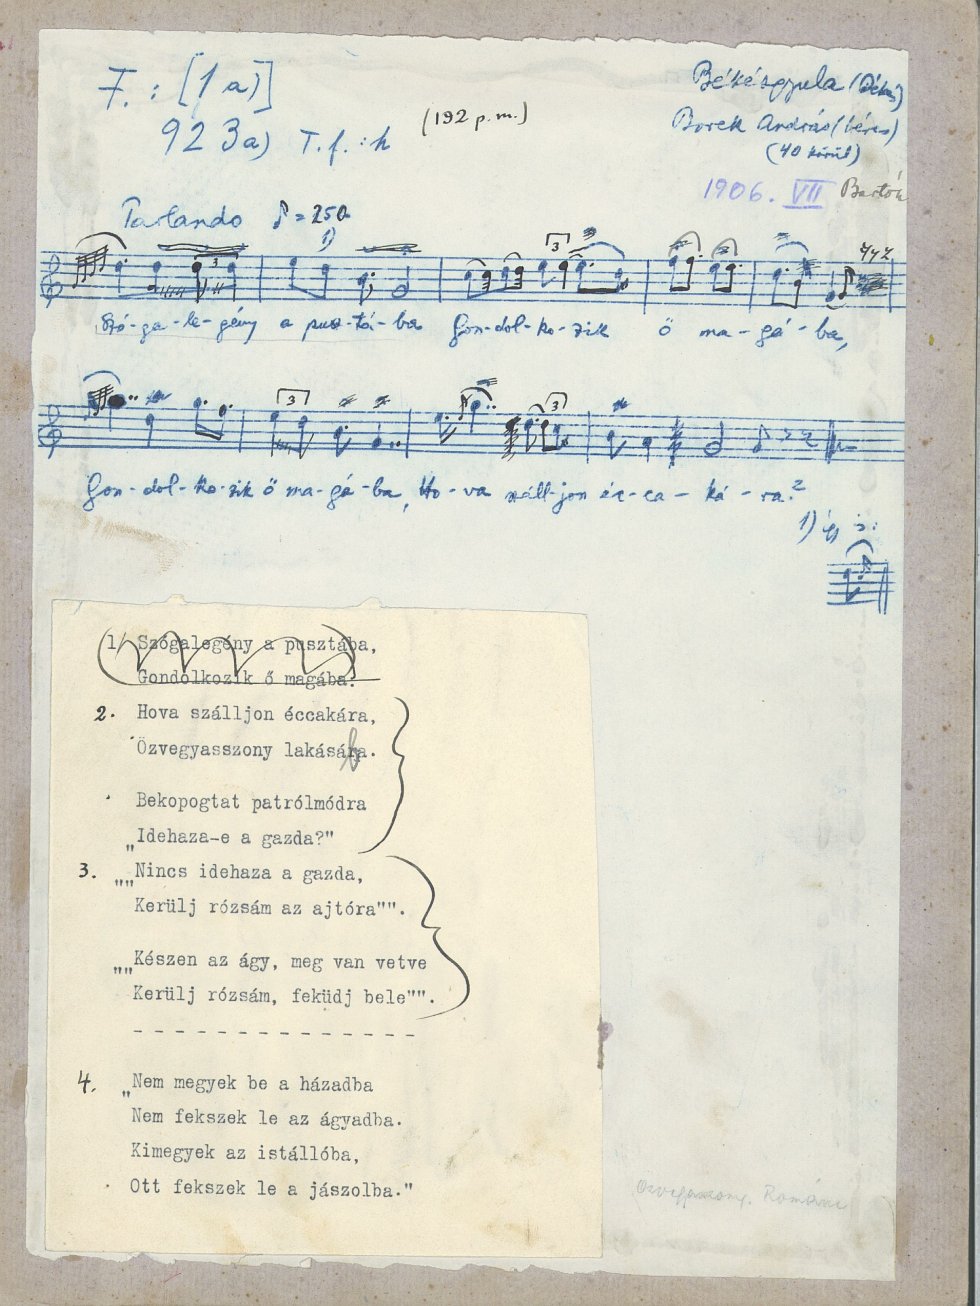 F. : [1 a)]
923a) T. f. : h
(192 p. m.)
Békésgyula (Békés)
Borek András (béres)
(40 körül)
1906. VII Bartók
Parlando ♪ = 250
1)
3
3
Szó-ga-le-gény a pusz-tá-ba Gon-dol-ko-zik ő ma-gá-ba,
3
3
Gon-dol-ko-zik ő ma-gá-ba, Ho-va száll-jon éc-ca-ká-ra?
1) és is:
1/ Szógalegény a pusztába,
Gondolkozik ő magába.
2. Hova szálljon éccakára,
Özvegyasszony lakására.
Bekopogtat patrólmódra
„Idehaza-e a gazda?"
3. „„Nincs idehaza a gazda,
Kerülj rózsám az ajtóra"".
„„Készen az ágy, meg van vetve
Kerülj rózsám, feküdj bele"".
- - - - - - - - - - - - - -
4. „Nem megyek be a házadba
Nem fekszek le az ágyadba.
Kimegyek az istállóba,
Ott fekszek le a jászolba."